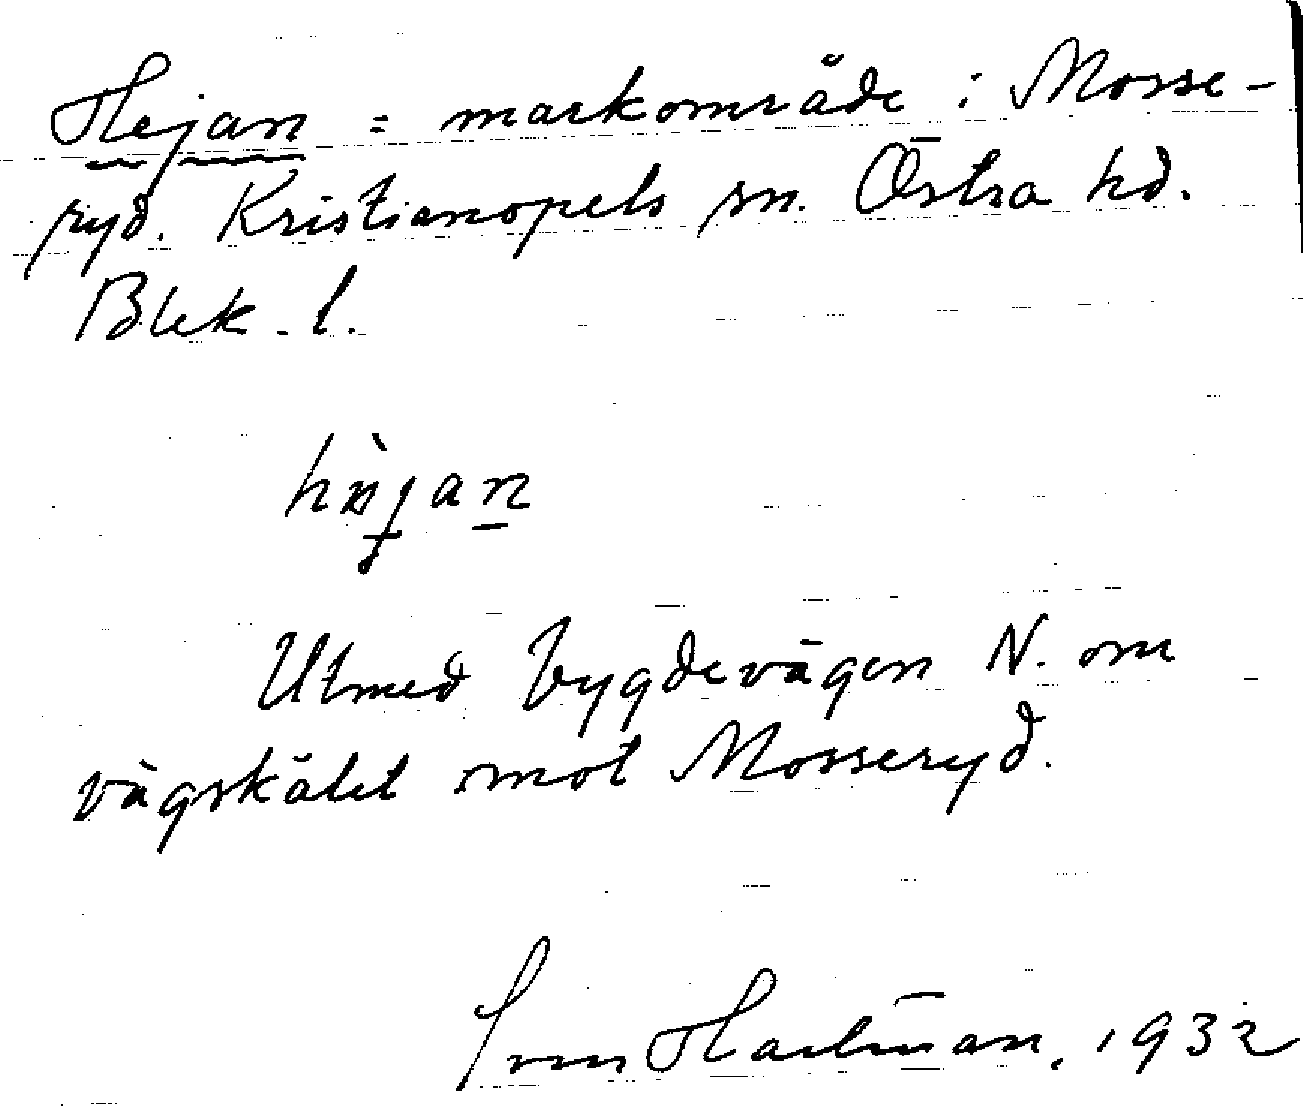 Hejan = markområde i Mosse-
ryd. Kristianopels sn. Östra hd.
Blek. l.
Utmed bygdevägen N. om
vägskälet mot Mosseryd.
Sven Hartman, 1932